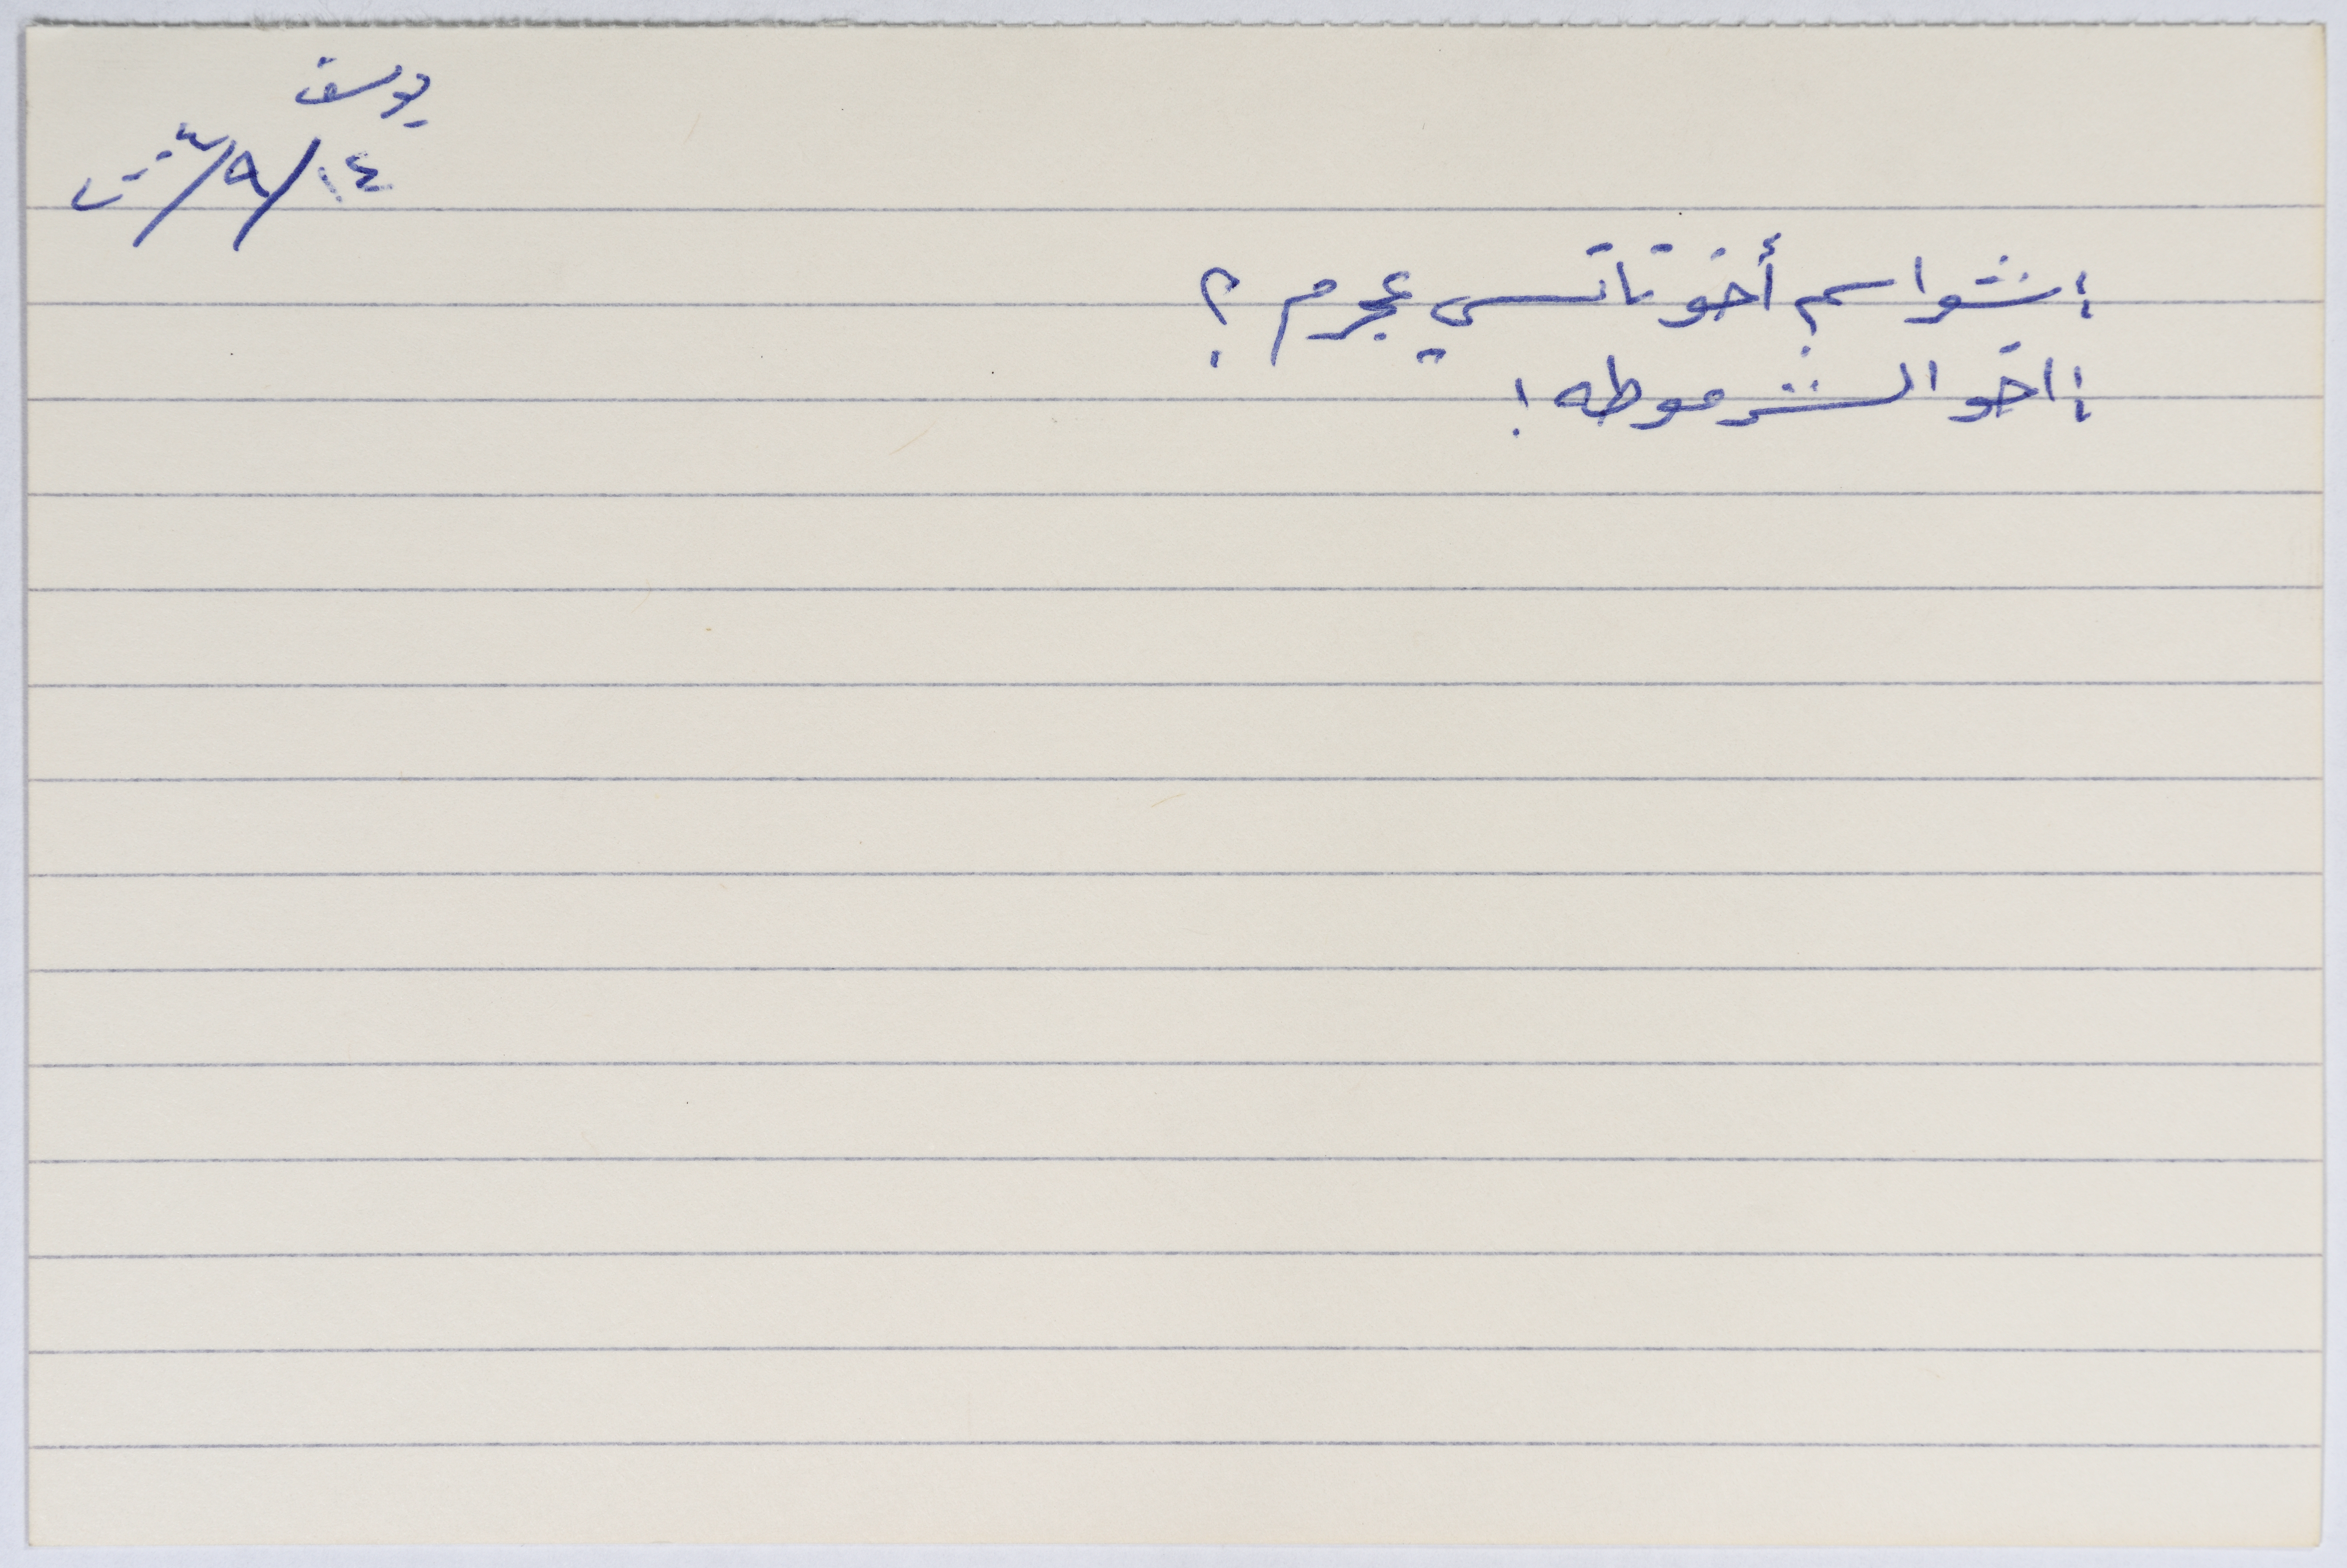 يوسف
١٤/٩/٢٠٠٣
: شو اسم أخو نانسي عجرم ؟
: اخو الشرموطه !